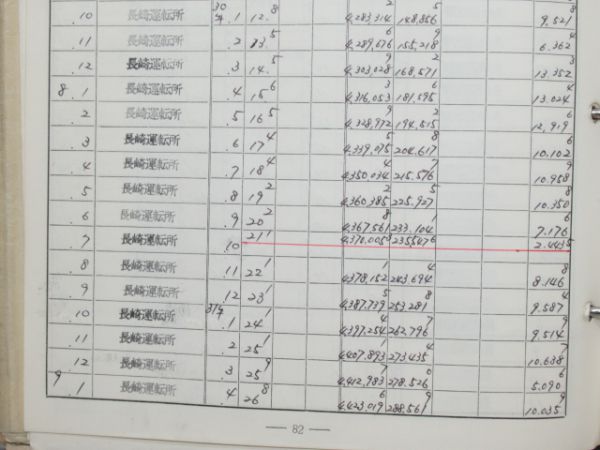 .10 長崎運転所 30年.1 12.8 4,283,314.2 148,856.5 9.521.8
.11 長崎運転所 .2 13.5 4,289,676.6 155,218.9 6.362.4
.12 長崎運転所 .3 14.5 4,303,028.9 168,571.2 13.352.3
8.1 長崎運転所 .4 15.6 4,316,053.3 181,595.6 13.024.4
.2 長崎運転所 .5 16.5 4,328,972.9 194,515.2 12.919.6
.3 長崎運転所 .6 17.4 4,339,075.5 204,617.8 10.102.6
.4 長崎運転所 .7 18.4 4,350,034.4 215,576.7 10.958.9
.5 長崎運転所 .8 19.2 4,360,385.2 225,927.5 10.350.8
.6 長崎運転所 .9 20.2 4,367,561.8 233,104.1 7.176.6
.7 長崎運転所 .10 21.1 4,370,005.3 235,547.6 2.443.5
.8 長崎運転所 .11 22.1 4,378,152.1 243,694.4 8.146.8
.9 長崎運転所 .12 23.1 4,387,739.5 253,281.8 9.587.4
.10 長崎運転所 31年.1 24.1 4,397,254.4 262,796.7 9.514.9
.11 長崎運転所 .2 25.1 4,407,893.1 273,435.4 10.638.7
.12 長崎運転所 .3 25.9 4,412,983.7 278,526.0 5.090.6
9.1 長崎運転所 .4 26.8 4,423,019.3 288,561.9 10.035.9
— 82 —